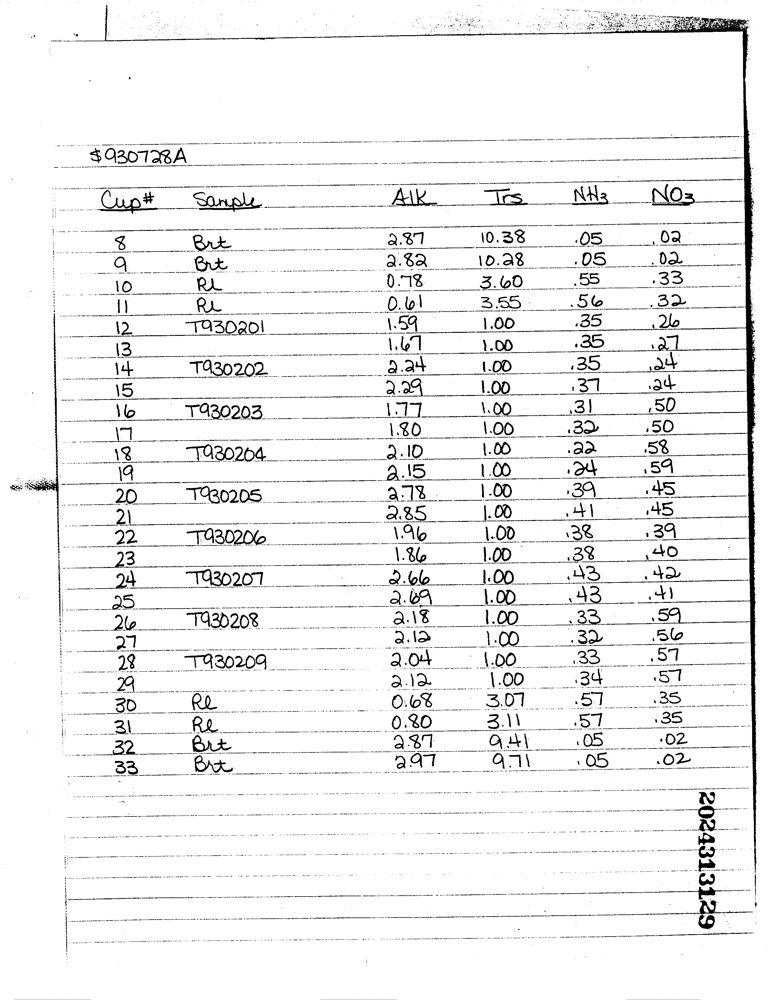 $930728A
Cup# Sample Alk Trs NH3 NO3
8 Brt 2.87 10.38 .05 .02
9 Brt 2.82 10.28 .05 .02
10 Rl 0.78 3.60 .55 .33
11 Rl 0.61 3.55 .56 .32
12 T930201 1.59 1.00 .35 .26
13 1.67 1.00 .35 .27
14 T930202 2.24 1.00 .35 .24
15 2.29 1.00 .37 .24
16 T930203 1.77 1.00 .31 .50
17 1.80 1.00 .32 .50
18 T930204 2.10 1.00 .22 .58
19 2.15 1.00 .24 .59
20 T930205 2.78 1.00 .39 .45
21 2.85 1.00 .41 .45
22 T930206 1.96 1.00 .38 .39
23 1.86 1.00 .38 .40
24 T930207 2.66 1.00 .43 .42
25 2.69 1.00 .43 .41
26 T930208 2.18 1.00 .33 .59
27 2.12 1.00 .32 .56
28 T930209 2.04 1.00 .33 .57
29 2.12 1.00 .34 .57
30 Rl 0.68 3.07 .57 .35
31 Rl 0.80 3.11 .57 .35
32 Brt 2.87 9.41 .05 .02
33 Brt 2.97 9.71 .05 .02
2024313129